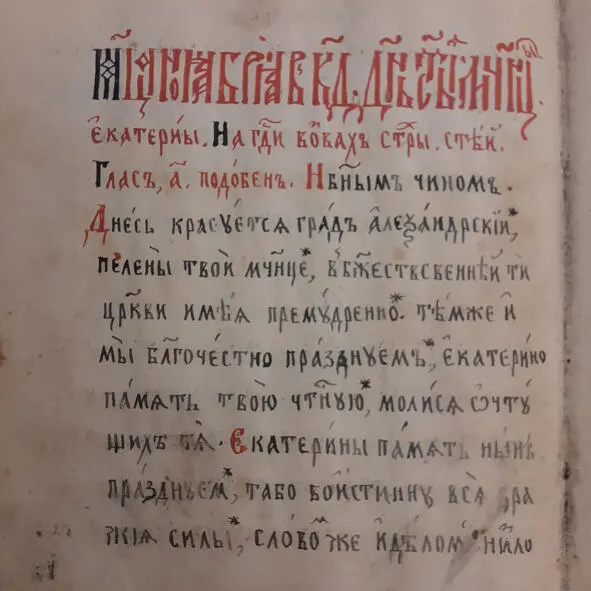 Мц҃а ноѧбрїа в к҃д. дн҃ь ст҃ыѧ мч҃нцы
є҆катерины. На гд҇и воз̾вахъ стх҃ры. ст҃ѣй.
Гласъ, а҃. подо́бенъ. Нбⷭ҇нымъ чиномъ.
Дне́сь красꙋ́етсѧ гра́дъ а҆леѯа́ндрскїй,*
пелены̀ твоѧ̀ мч҃нце, в бж҇е́ствсвеннѣй тѝ
цр҃кви и҆мѣ́ѧ премꙋ́дренно.* тѣ́мже и҆
мы̀ бл҃гоче́стно пра́зднꙋемъ,* є҆катери́но
па́мѧть твою̀ чтⷭ҇нꙋю,* моли́сѧ ѡ҆ чтꙋ
щихъ тѧ̀. Є҆катери́ны па́мѧть ны́нѣ
пра́зднꙋем,* та́бо вои́стиннꙋ всѧ̑ вра
жїѧ си́лы,* сло́вом же и҆ дѣ́лом низло